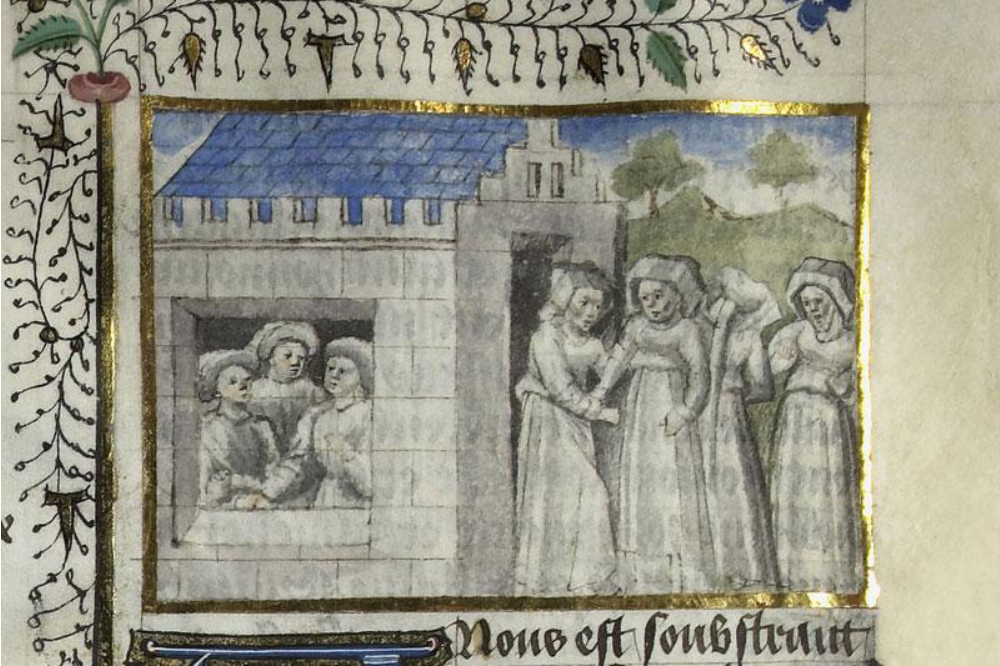 Nous est soubstraut